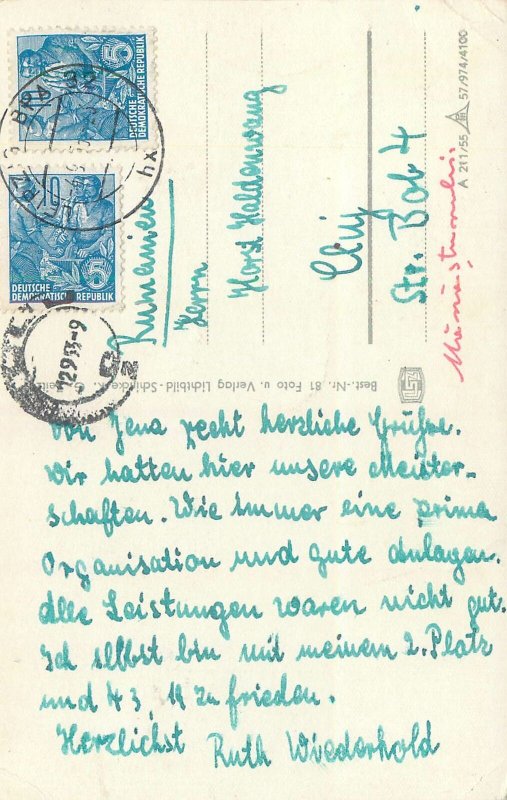 5
DEUTSCHE
DEMOKRATISCHE REPUBLIK
10
5
DEUTSCHE
DEMOKRATISCHE REPUBLIK
Rumänien
Herrn
Horst Haldenwang
Cluj
Str. Bob 4
A 211/55 57/974/4100
Best.-Nr. 81 Foto u. Verlag Lichtbild-
Von Jena recht herzliche Grüße.
Wir hatten hier unsere Meister-
schaften. Wie immer eine prima
Organisation und gute Anlagen.
Alle Leistungen waren nicht gut.
Ich selbst bin mit meinem 2. Platz
und 43,19 zufrieden.
Herzlichst Ruth Wiederhold